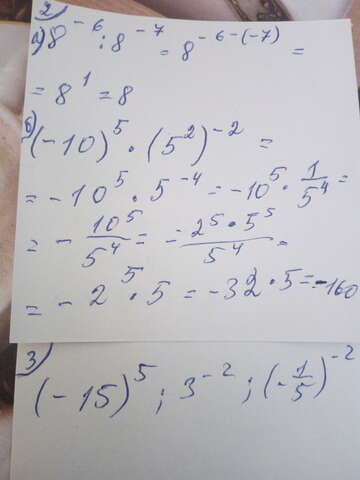 2)
а) 8^-6 : 8^-7 = 8^-6-(-7) =
= 8^1 = 8
б)
(-10)^5 · (5^2)^-2 =
= -10^5 · 5^-4 = -10^5 · 1/5^4 =
= - 10^5/5^4 = = -2^5 · 5^5/5^4 =
= -2^5 · 5 = -32 · 5 = -160
3)
(-15)^5 ; 3^-2 ; (-1/5)^-2